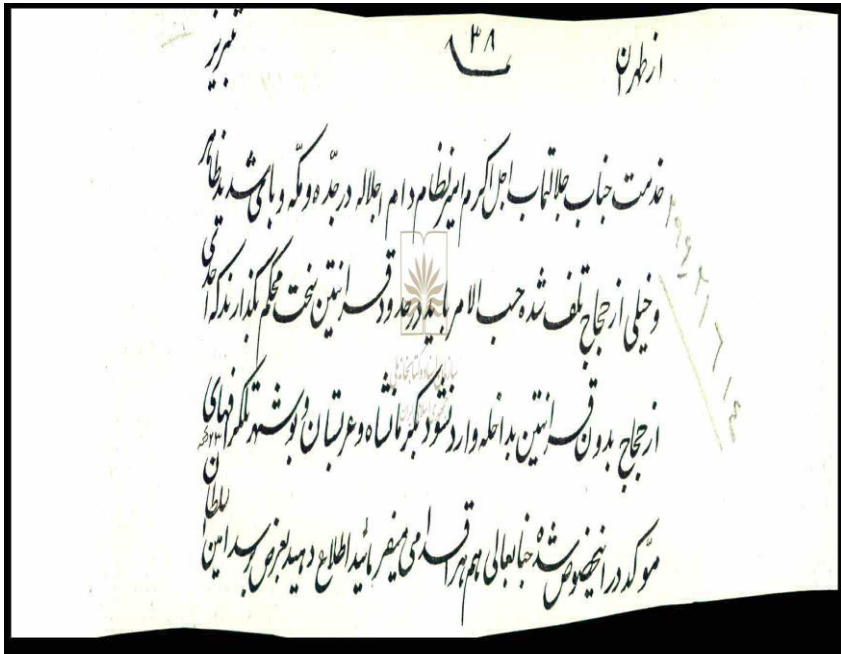 از طهران
۸۳۸
تبریز
خدمت جناب جلالتماب اجل اکرم امیرنظام دام اجلاله در جدّه و مکّه وبای شدید ظاهر
و خیلی از حجاج تلف شده حسب الامر باید در حدود قرانتین سخت محکم بگذارند که احدی
از حجاج بدون قرانتین بداخله وارد نشود بکرمانشاه و عربستان و بوشهر تلگرافهای
موکد در اینخصوص شده جنابعالی هم هر اقدامی میفرمائید اطلاع دهید بعرض برسد امین السلطان
سازمان اسناد و کتابخانه ملی
جمهوری اسلامی ایران